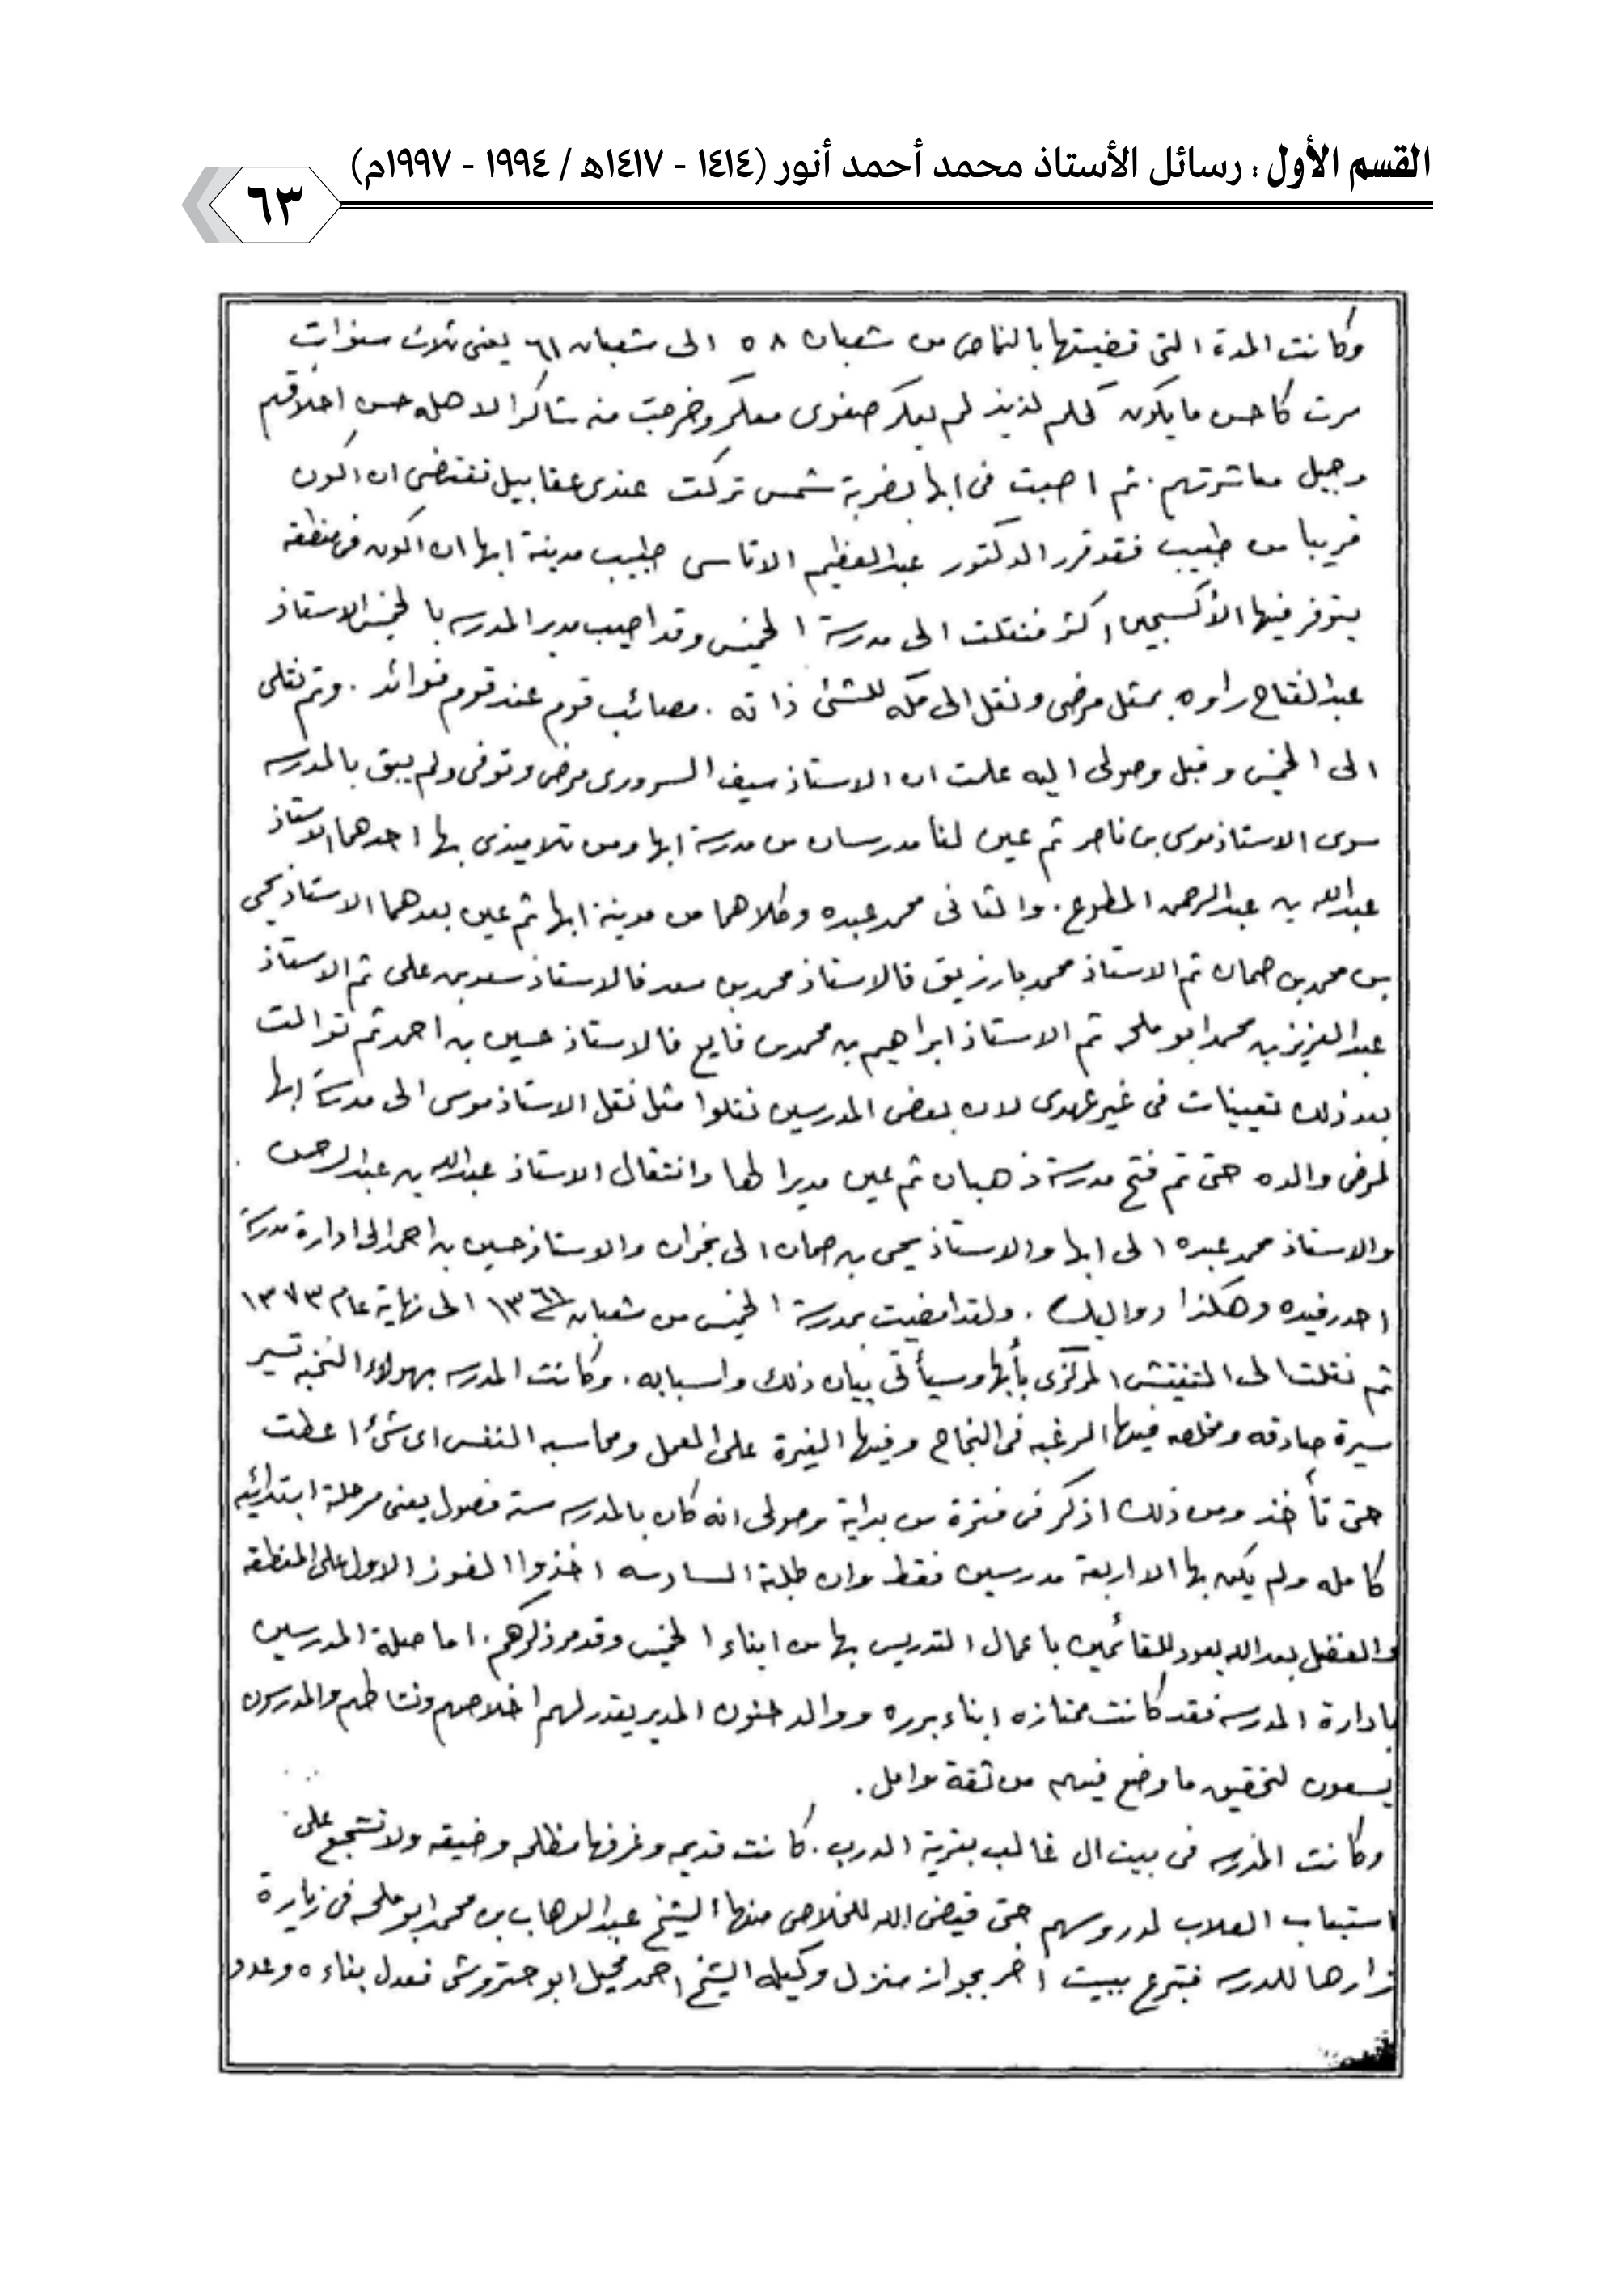 القسم الأول : رسائل الأستاذ محمد أحمد أنور (١٤١٤ - ١٤١٧هـ / ١٩٩٤ - ١٩٩٧م)
٦٣
وكانت المدة التى قضيتها بالنماص من شعبان ٥٨ الى شعبان ٦١ يعنى ثلاث سنوات
مرت كاحسن ما يكون كحلم لذيذ لم يعكر صفوى معكر وخرجت منه شاكرا لاهله حسن اخلاقهم
وجميل معاشرتهم . ثم اصبت فى ابها بضربة شمس تركت عندى عقابيل تقتضى ان اكون
قريبا من طبيب فقد قرر الدكتور عبدالعظيم الاتاسى طبيب مدينة ابها ان اكون فى منطقه
يتوفر فيها الأكسجين اكثر فنقلت الى مدرسة الخميس وقد اصيب مدير المدرسه بالخميس الاستاذ
عبدالفتاح راوه بمثل مرضى ونقل الى مكه للشئ ذاته . مصائب قوم عند قوم فوائد . وتم نقلى
الى الخميس وقبل وصولى اليه علمت ان الاستاذ سيف السرورى مرض وتوفى ولم يبق بالمدرسه
سوى الاستاذ موسى بن ناصر ثم عين لنا مدرسان من مدرسة ابها ومن تلاميذى بها احدهما الاستاذ
عبدالله بن عبدالرحمن المطوع . والثانى محمد عبده وكلاهما من مدينة ابها ثم عين بعدهما الاستاذ يحى
بن محمد بن حمان ثم الاستاذ محمد بارزيق فالاستاذ محمد بن سعد فالاستاذ سعد بن على ثم الاستاذ
عبدالعزيز بن محمد ابو ملحه ثم الاستاذ ابراهيم بن محمد بن فايع فالاستاذ حسين بن احمد ثم توالت
بعد ذلك تعيينات فى غير عهدى لان بعض المدرسين نقلوا مثل نقل الاستاذ موسى الى مدرسة ابها
لمرض والده حتى تم فتح مدرسة ذهبان ثم عين مديرا لها وانتقال الاستاذ عبدالله بن عبدالرحمن
والاستاذ محمد عبده الى ابها والاستاذ يحى بن حمان الى نجران والاستاذ حسين بن احمد الى ادارة مدرسة
احد رفيده وهكذا دواليك . ولقد امضيت بمدرسة الخميس من شعبان ١٣٦١ الى نهاية عام ١٣٧٣
ثم نقلت الى التفتيش المركزى بأبها وسيأتى بيان ذلك واسبابه . وكانت المدرسه بهولاء النخبه تسير
سيرة صادقه ومخلصه فيها الرغبه فى النجاح وفيها الغيرة على العمل ومحاسبه النفس اى شئ اعطت
حتى تأخذ ومن ذلك اذكر فى فترة من بداية وصولى انه كان بالمدرسه ستة فصول يعنى مرحلة ابتدائيه
كامله ولم يكن بها الا اربعة مدرسين فقط وان طلبة السادسه اخذوا الفوز الاول على المنطقه
والفضل بعد الله يعود للقائمين باعمال التدريس بها من ابناء الخميس وقد مر ذكرهم . اما صلة المدرسين
بادارة المدرسه فقد كانت ممتازه ابناء برره ووالد حنون المدير يقدر لهم اخلاصهم ونشاطهم والمدرسون
يسعون لتحقيق ما وضع فيهم من ثقة وامل .
وكانت المدرسه فى بيت ال غالب بقرية الدرب . كانت قديمه وغرفها مظلمه وضيقه ولا تشجع على
استيعاب الطلاب لدروسهم حتى قيض الله للخلاص منها الشيخ عبدالوهاب بن محمد ابو ملحه فى زيارة
زارها للمدرسه فتبرع ببيت اخر بجوار منزل وكيله الشيخ احمد محيل ابو حتروش فعدل بناءه وعدد